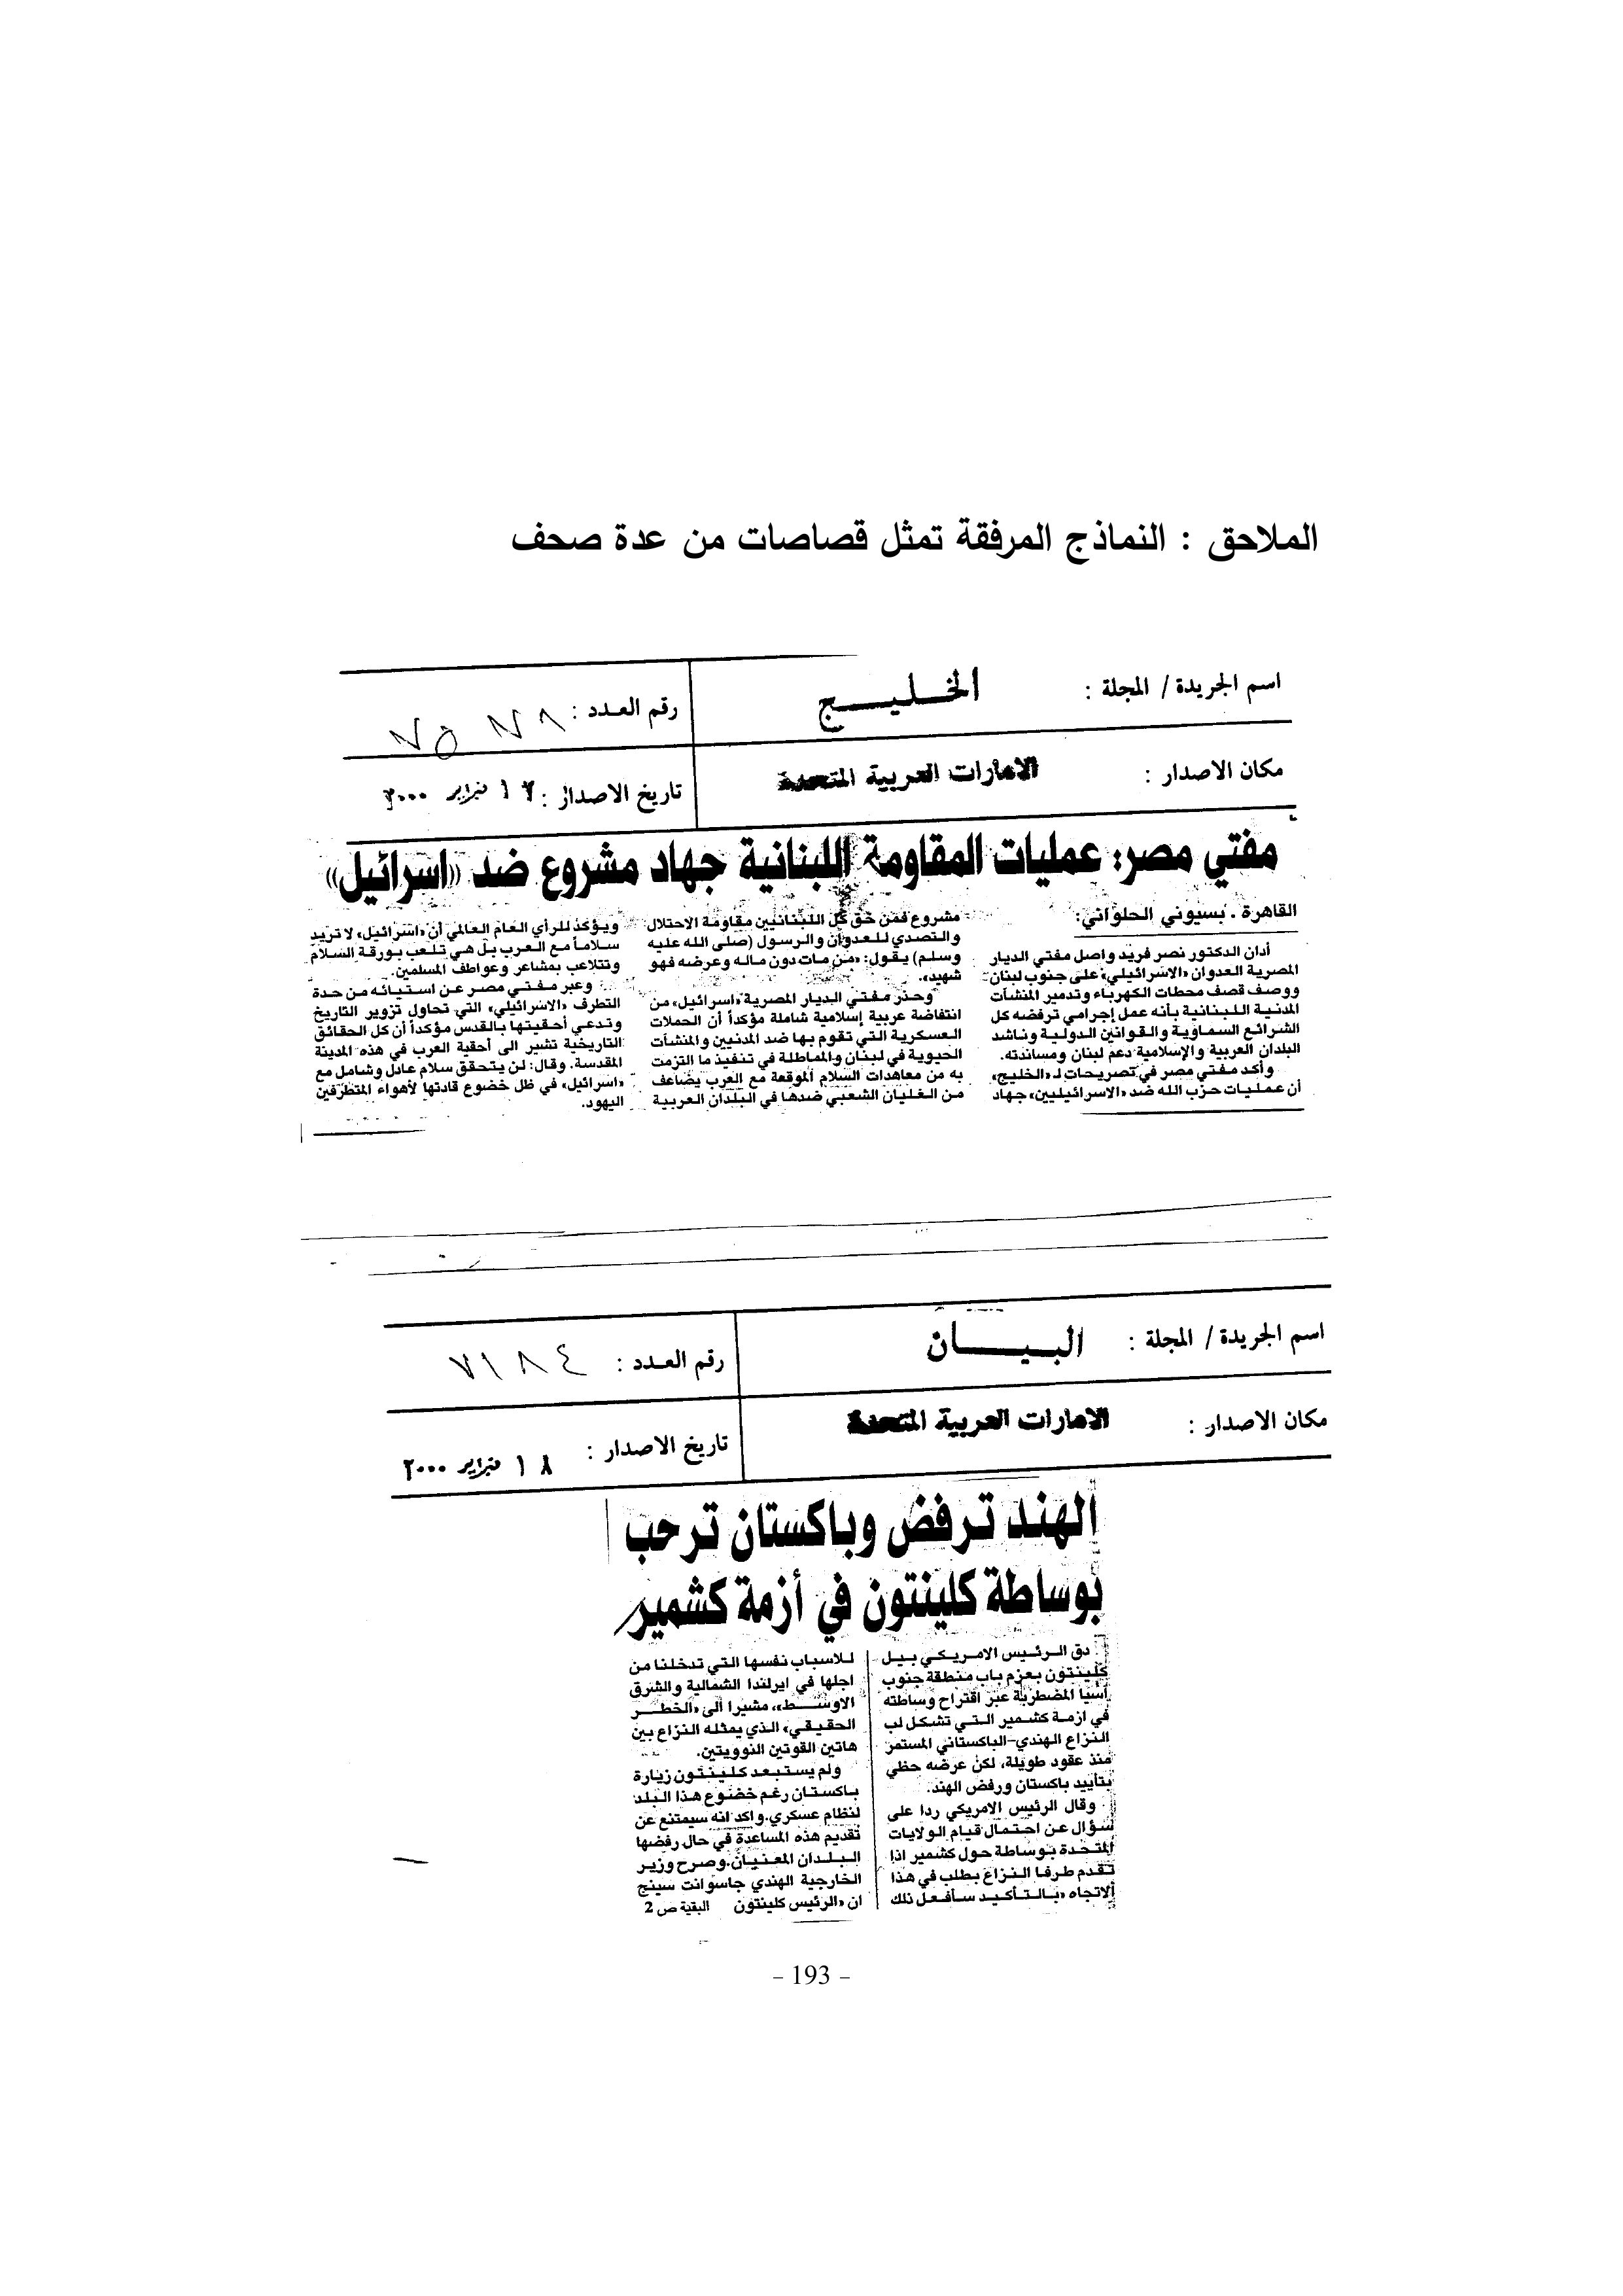 الملاحق : النماذج المرفقة تمثل قصاصات من عدة صحف
اسم الجريدة / المجلة : الخليج
رقم العدد : ٧٥٧٨
مكان الاصدار : الامارات العربية المتحدة
تاريخ الاصدار : فبراير ٢٠٠٠
مفتي مصر: عمليات المقاومة اللبنانية جهاد مشروع ضد «اسرائيل»
القاهرة ـ بسيوني الحلواني:
أدان الدكتور نصر فريد واصل مفتي الديار
المصرية العدوان «الاسرائيلي» على جنوب لبنان
ووصف قصف محطات الكهرباء وتدمير المنشآت
المدنية اللبنانية بأنه عمل إجرامي ترفضه كل
الشرائع السماوية والقوانين الدولية وناشد
البلدان العربية والإسلامية دعم لبنان ومساندته.
وأكد مفتي مصر في تصريحات لـ «الخليج»
أن عمليات حزب الله ضد «الاسرائيليين» جهاد
مشروع فمن حق كل اللبنانيين مقاومة الاحتلال
والتصدي للعدوان والرسول (صلى الله عليه
وسلم) يقول: «من مات دون ماله وعرضه فهو
شهيد».
وحذر مفتي الديار المصرية «اسرائيل» من
انتفاضة عربية إسلامية شاملة مؤكداً أن الحملات
العسكرية التي تقوم بها ضد المدنيين والمنشآت
الحيوية في لبنان والمماطلة في تنفيذ ما التزمت
به من معاهدات السلام الموقعة مع العرب يضاعف
من الغليان الشعبي ضدها في البلدان العربية
ويؤكد للرأي العام العالمي أن «اسرائيل» لا تريد
سلاماً مع العرب بل هي تلعب بورقة السلام
وتتلاعب بمشاعر وعواطف المسلمين.
وعبر مفتي مصر عن استيائه من حدة
التطرف «الاسرائيلي» التي تحاول تزوير التاريخ
وتدعي أحقيتها بالقدس مؤكداً أن كل الحقائق
التاريخية تشير الى أحقية العرب في هذه المدينة
المقدسة. وقال: لن يتحقق سلام عادل وشامل مع
«اسرائيل» في ظل خضوع قادتها لأهواء المتطرفين
اليهود.
اسم الجريدة / المجلة : البيان
رقم العدد : ٧١٨٤
مكان الاصدار : الامارات العربية المتحدة
تاريخ الاصدار : ١٨ فبراير ٢٠٠٠
الهند ترفض وباكستان ترحب
بوساطة كلينتون في أزمة كشمير
دق الرئيس الامريكي بيل
كلينتون بعزم باب منطقة جنوب
آسيا المضطربة عبر اقتراح وساطته
في ازمة كشمير التي تشكل لب
النزاع الهندي-الباكستاني المستمر
منذ عقود طويلة، لكن عرضه حظي
بتأييد باكستان ورفض الهند.
وقال الرئيس الامريكي ردا على
سؤال عن احتمال قيام الولايات
المتحدة بوساطة حول كشمير اذا
تقدم طرفا النزاع بطلب في هذا
الاتجاه «بالتأكيد سأفعل ذلك
للاسباب نفسها التي تدخلنا من
اجلها في ايرلندا الشمالية والشرق
الاوسط»، مشيرا الى «الخطر
الحقيقي» الذي يمثله النزاع بين
هاتين القوتين النوويتين.
ولم يستبعد كلينتون زيارة
باكستان رغم خضوع هذا البلد
لنظام عسكري. واكد انه سيمتنع عن
تقديم هذه المساعدة في حال رفضها
البلدان المعنيان. وصرح وزير
الخارجية الهندي جاسوانت سينج
ان «الرئيس كلينتون البقية ص 2
- 193 -